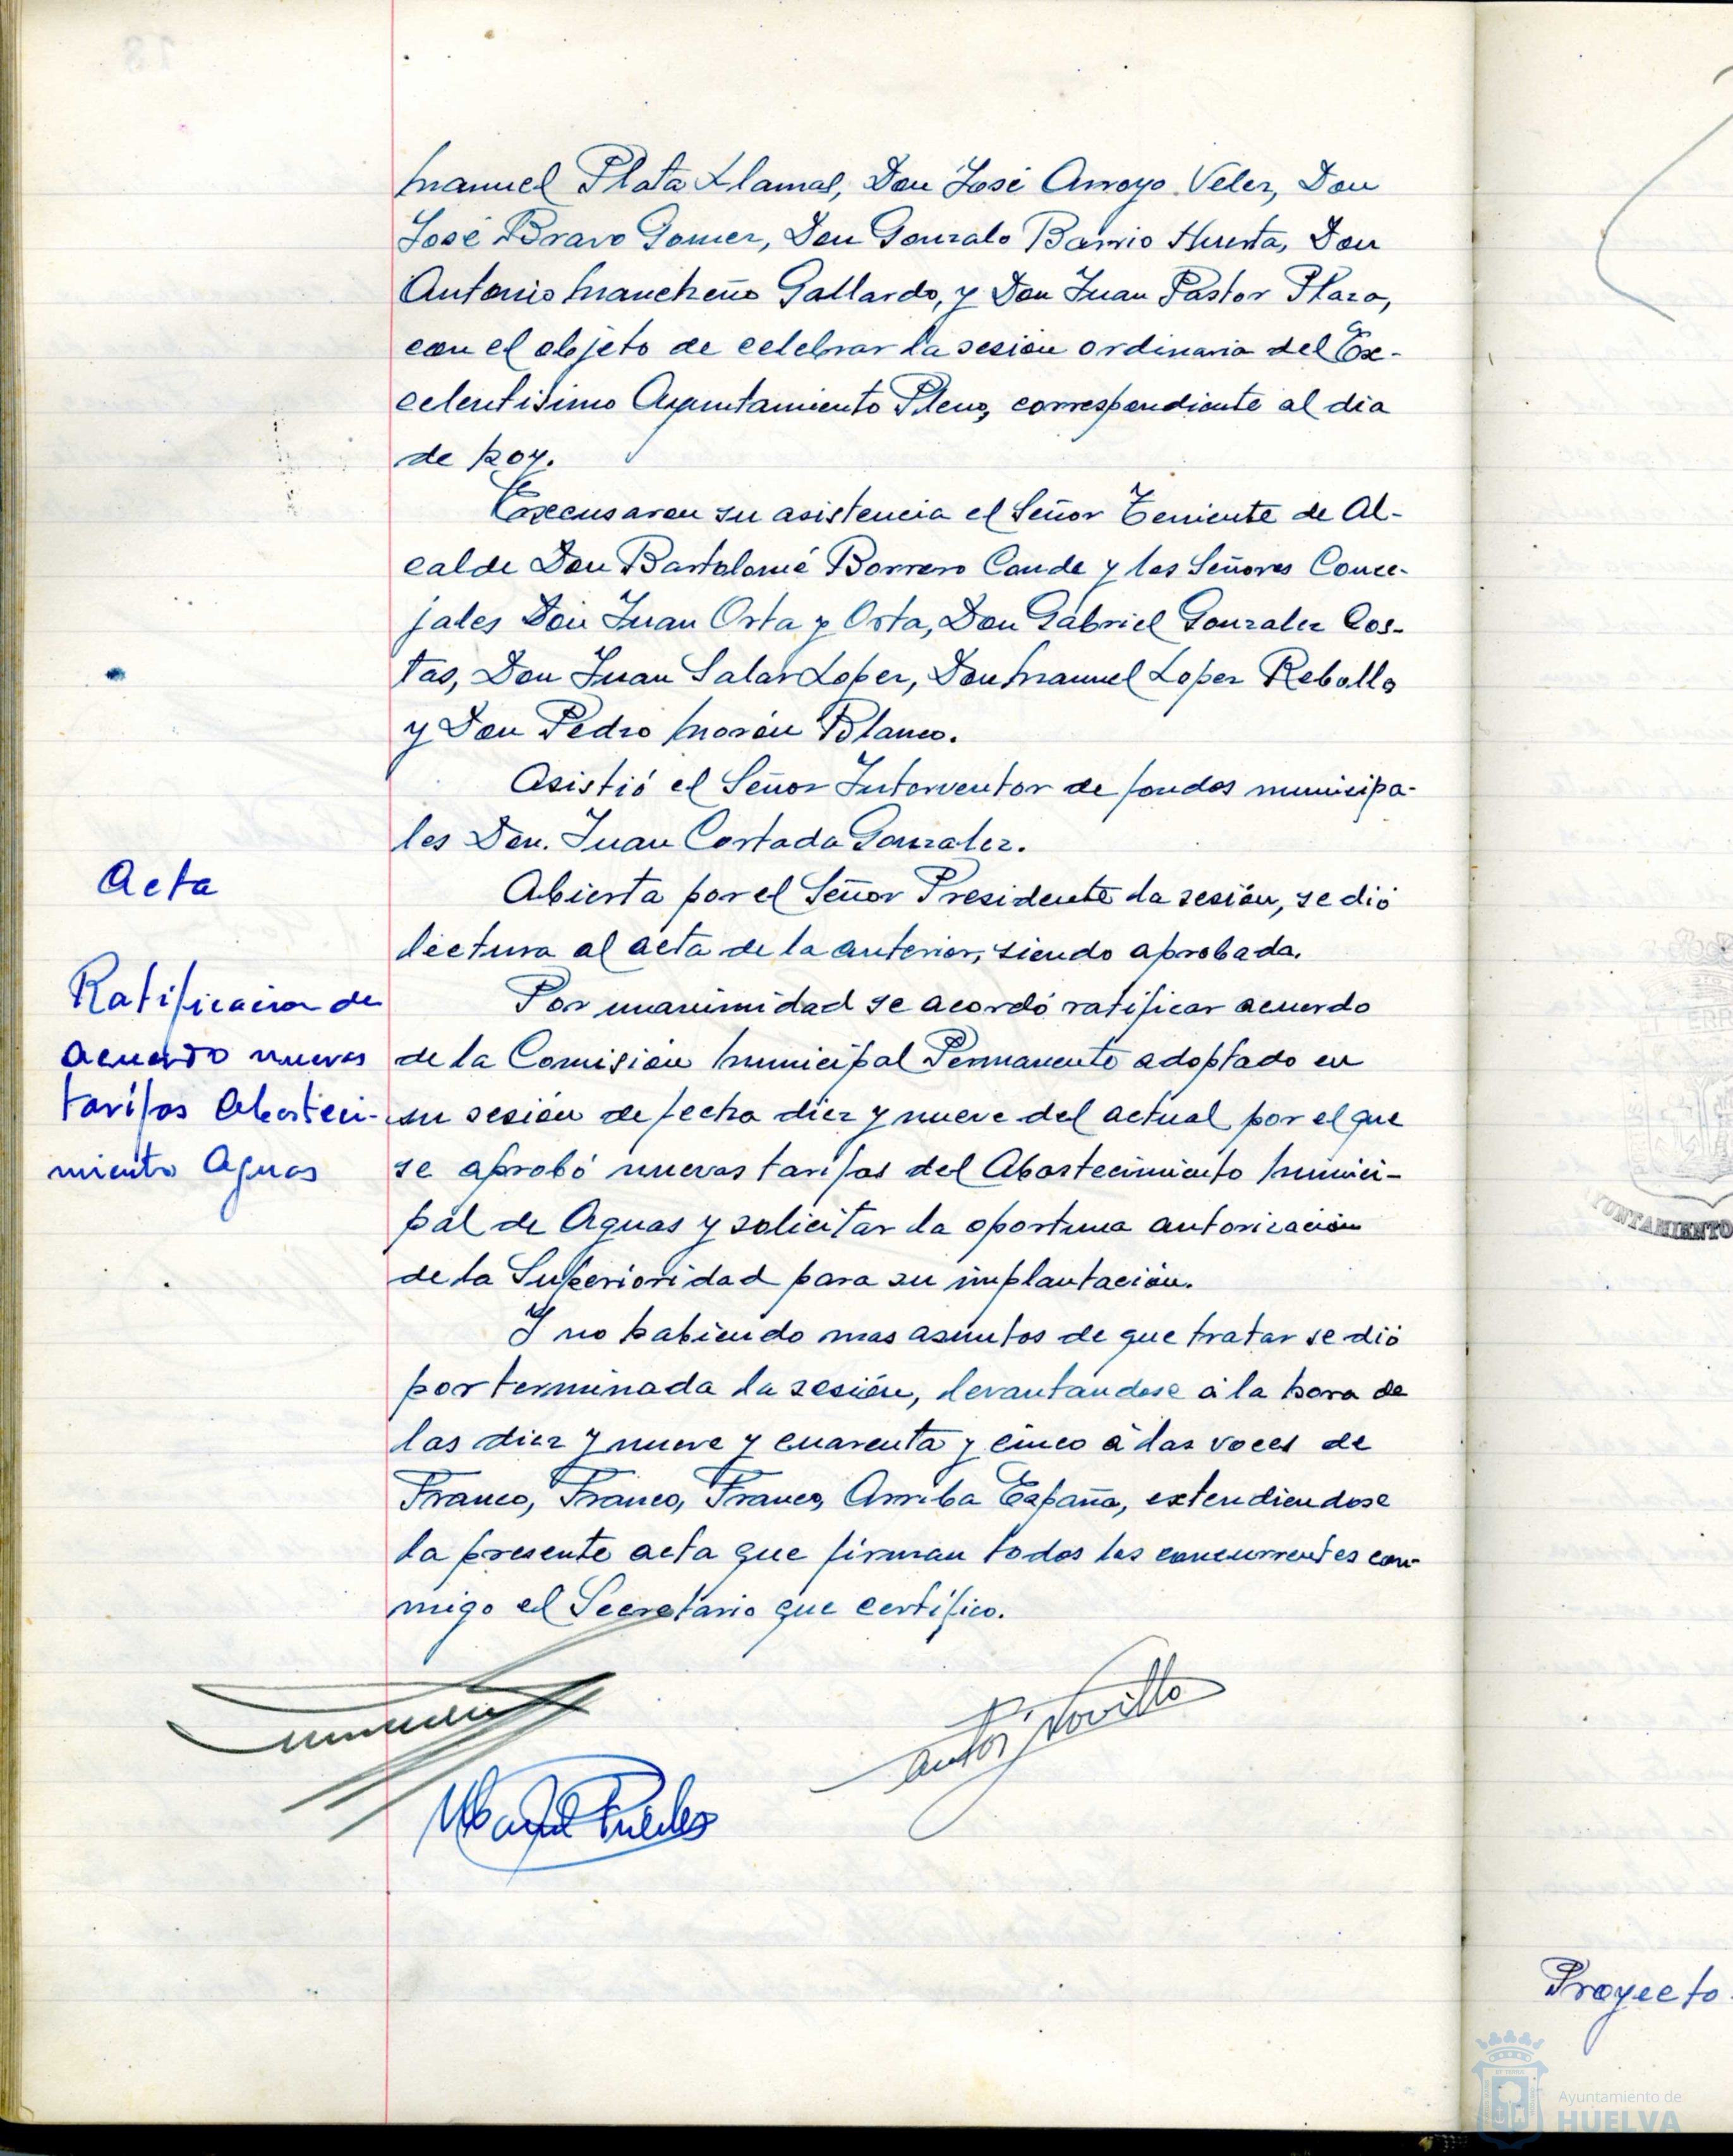 Manuel Plata Llamas, Don José Arroyo Velez, Don
José Bravo Gomez, Don Gonzalo Barrio Huerta, Don
Antonio Mancheño Gallardo, y Don Juan Pastor Plaza,
con el objeto de celebrar la sesión ordinaria del Ex-
celentisimo Ayuntamiento Pleno, correspondiente al dia
de hoy.
Excusaron su asistencia el Señor Teniente de Al-
calde Don Bartolomé Borrero Conde y los Señores Conce-
jales Don Juan Orta y Orta, Don Gabriel Gonzalez Cos-
tas, Don Juan Salas Lopez, Don Manuel Lopez Rebollo
y Don Pedro Morón Blanco.
Asistió el Señor Interventor de fondos municipa-
les Don Juan Cortada Gonzalez.
Acta
Abierta por el Señor Presidente la sesión, se dió
lectura al acta de la anterior, siendo aprobada.
Ratificacion de
acuerdo nuevas
tarifas Abasteci-
miento Aguas
Por unanimidad se acordó ratificar acuerdo
de la Comision Municipal Permanente adoptado en
su sesión de fecha diez y nueve del actual por el que
se aprobó nuevas tarifas del Abastecimiento Munici-
pal de Aguas y solicitar la oportuna autorización
de la Superioridad para su implantación.
Y no habiendo mas asuntos de que tratar se dió
por terminada la sesión, levantandose á la hora de
las diez y nueve y cuarenta y cinco á las voces de
Franco, Franco, Franco, Arriba España, extendiendose
la presente acta que firman todos los concurrentes con-
migo el Secretario que certifico.
YUNTAMIENTO
Proyecto
Ayuntamiento de
HUELVA